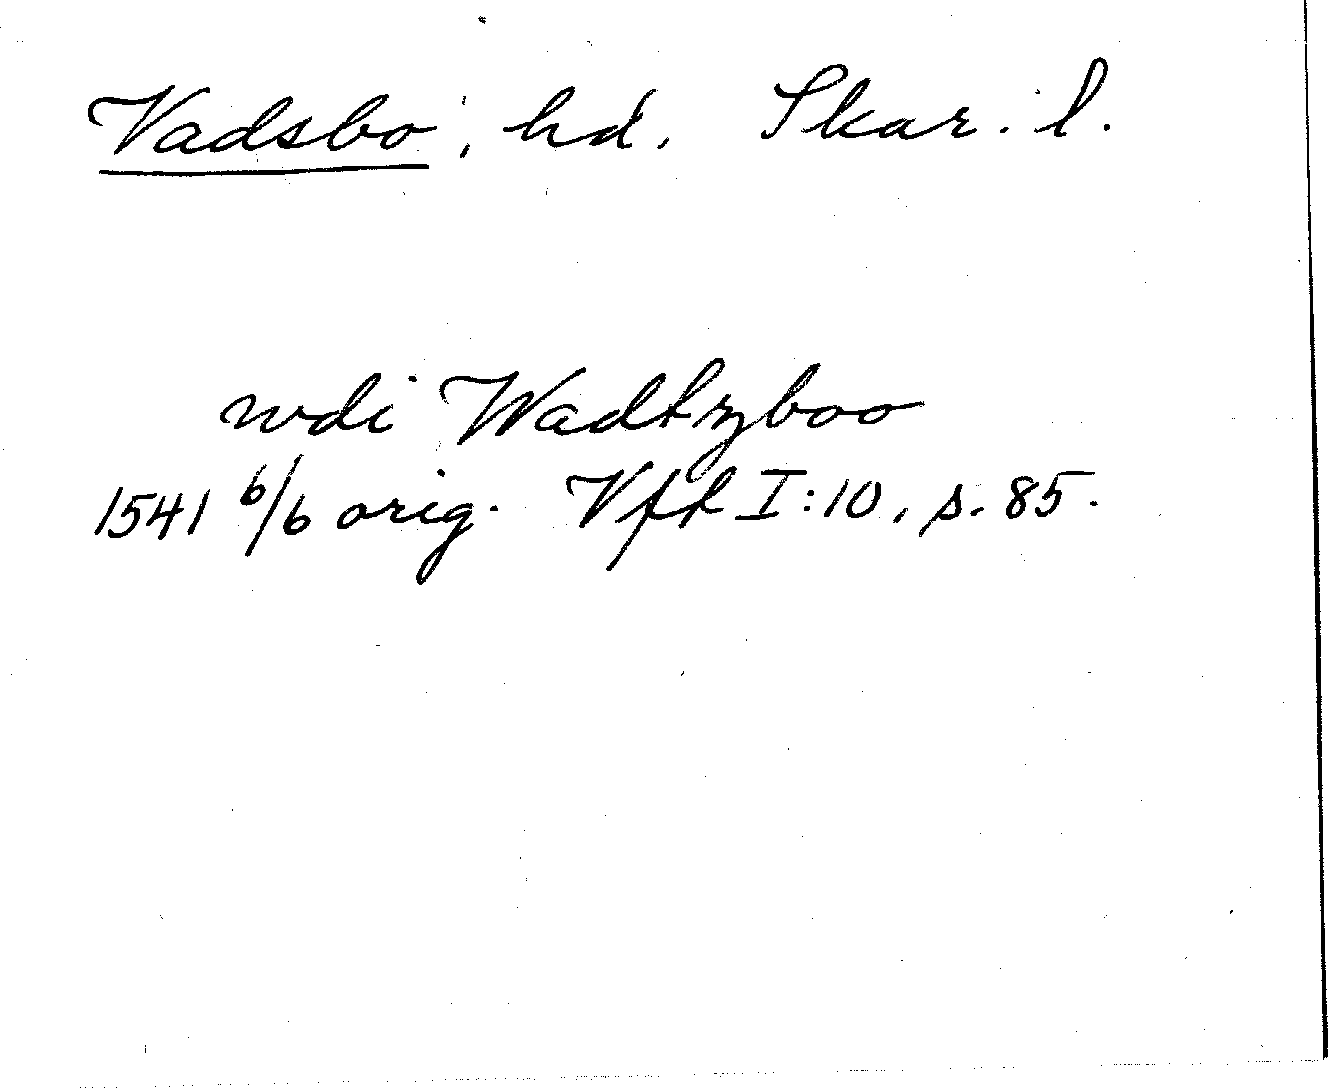 Vadsbo, hd. Skar. l.
wdi Wadtzboo
1541 6/6 orig. Vfl I:10, s. 85.